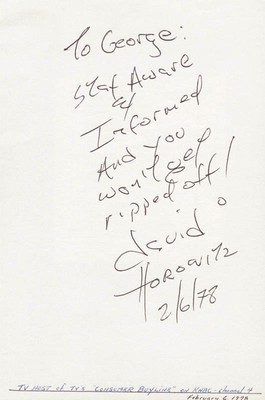 To George:
Stay Aware
&
Informed
And you
won't get
ripped off!
david
Horowitz
2/6/78
TV HOST OF TV'S "CONSUMER BUYLINE" ON KNBC - channel 4
February 6, 1978